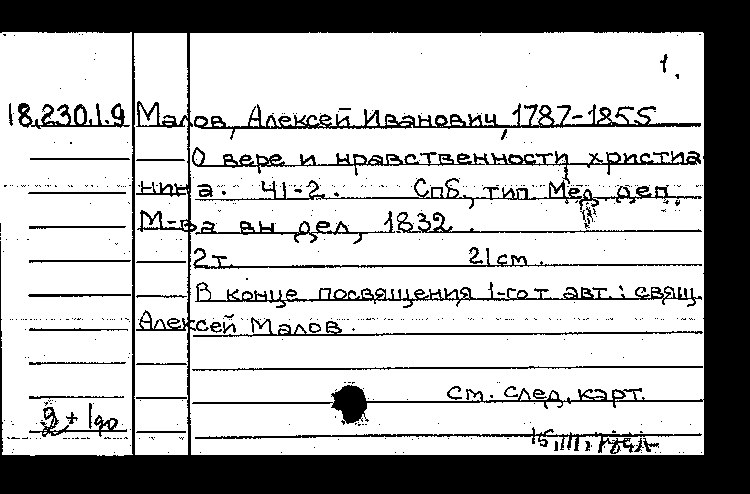 1.
18.230.1.9 Малов, Алексей Иванович, 1787-1855
О вере и нравственности христиа
нина. Ч1-2. Спб., тип. Мед. деп.
М-ва вн. дел, 1832.
2т. 21см.
В конце посвящения 1-го т. авт.: свящ.
Алексей Малов.
см. след. карт.